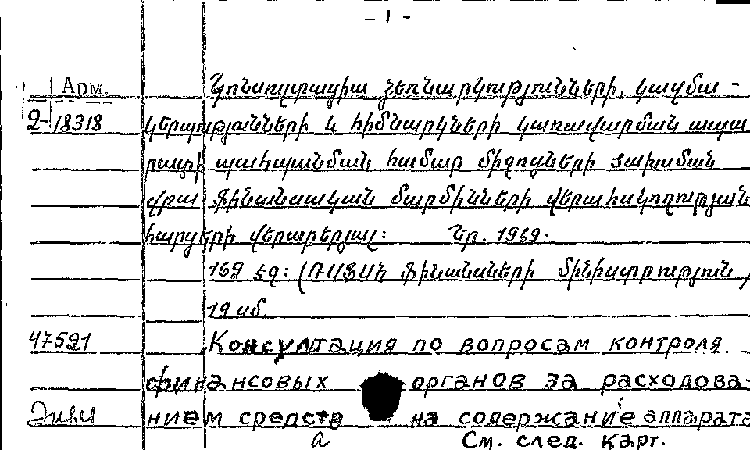 - 1 -
Арм.
2-18318
Կոնսուլտացիա ձեռնարկությունների, կազմա-
կերպությունների և հիմնարկների կառավարման ապա-
րատի պահպանման համար միջոցների ծախսման
վրա ֆինանսական մարմինների վերահսկողության
հարցերի վերաբերյալ: Եր. 1969.
169 էջ: (ՀՍՍՀ ֆինանսների մինիստրություն,
47521
Консультация по вопросам контроля
финансовых органов за расходова-
нием средств на содержание аппарата
См. след. карт.